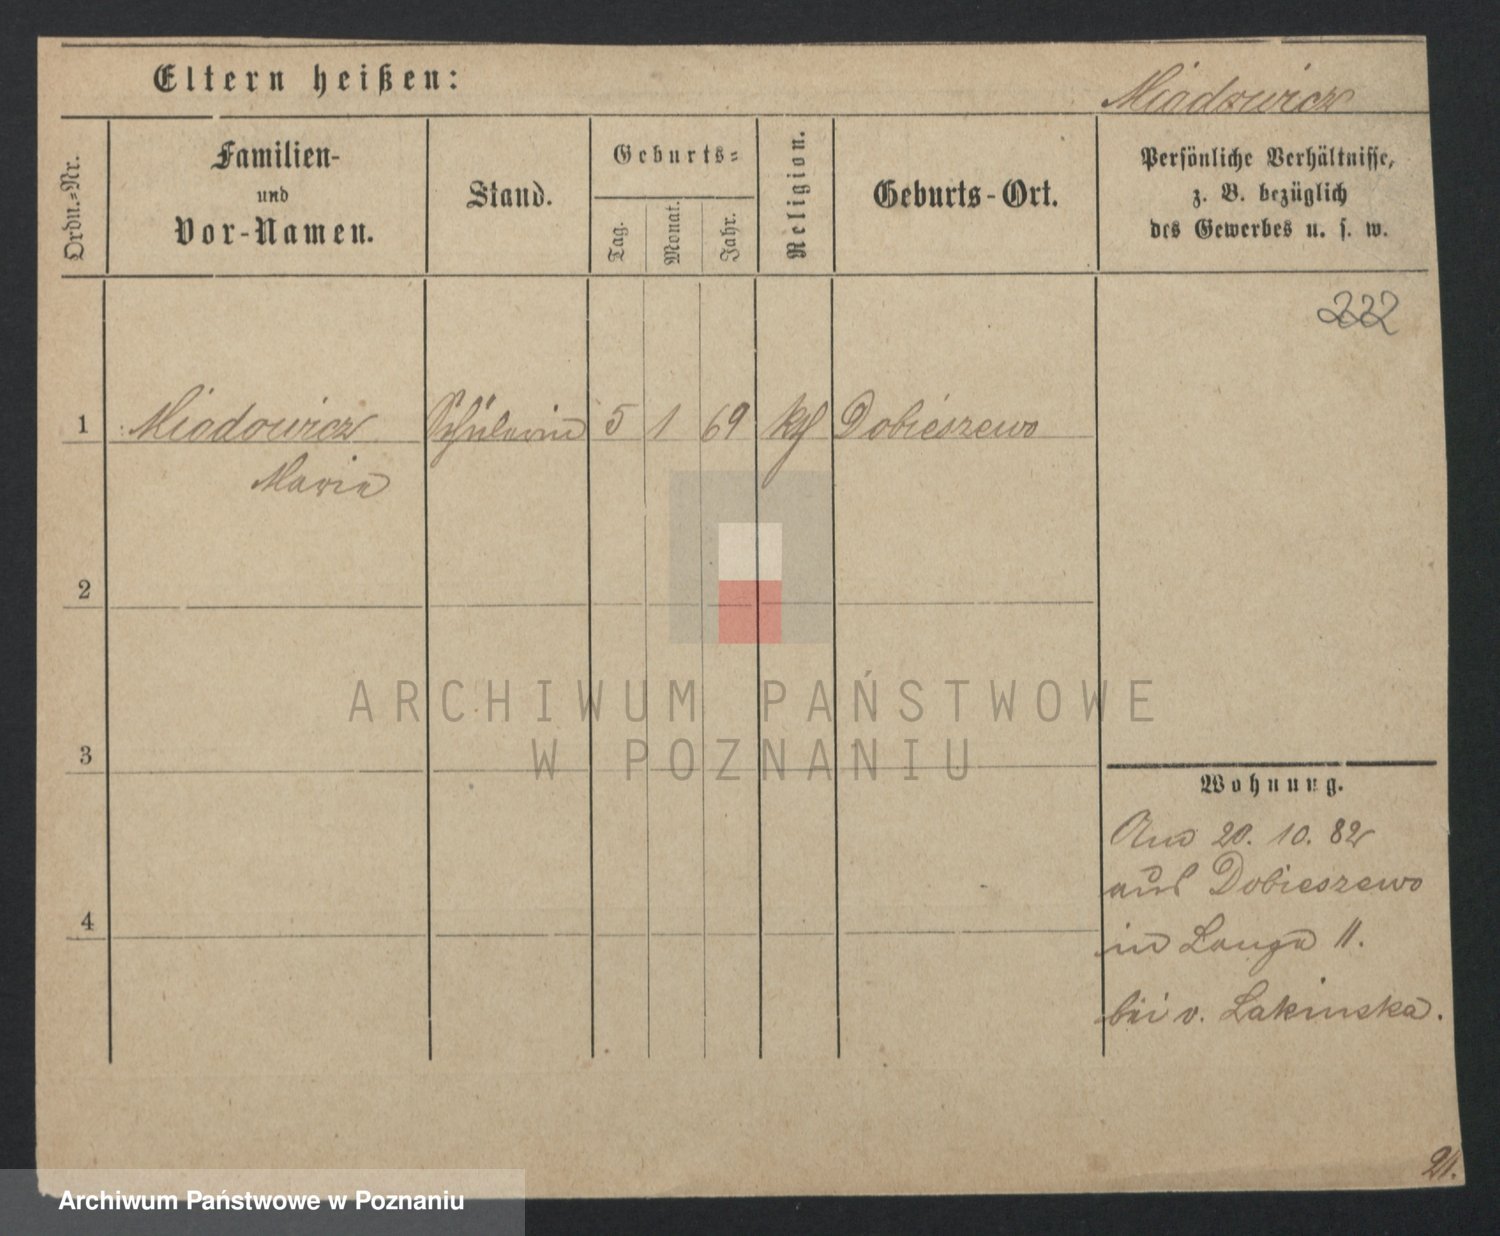 Eltern heißen:
Miodowicz
Ordn.-Nr.
Familien-
und
Vor-Namen.
Stand.
Geburts-
Tag.
Monat.
Jahr.
Religion.
Geburts-Ort.
Persönliche Verhältnisse,
z. B. bezüglich
des Gewerbes u. s. w.
222
1 Miodowicz Schülerin 5 1 69 kth Dobieszewo
Marie
2
3
4
Wohnung.
20. 10. 82
aus Dobieszewo
in Lange 11.
bei v. Lakinska.
21.
ARCHIWUM PAŃSTWOWE
W POZNANIU
Archiwum Państwowe w Poznaniu